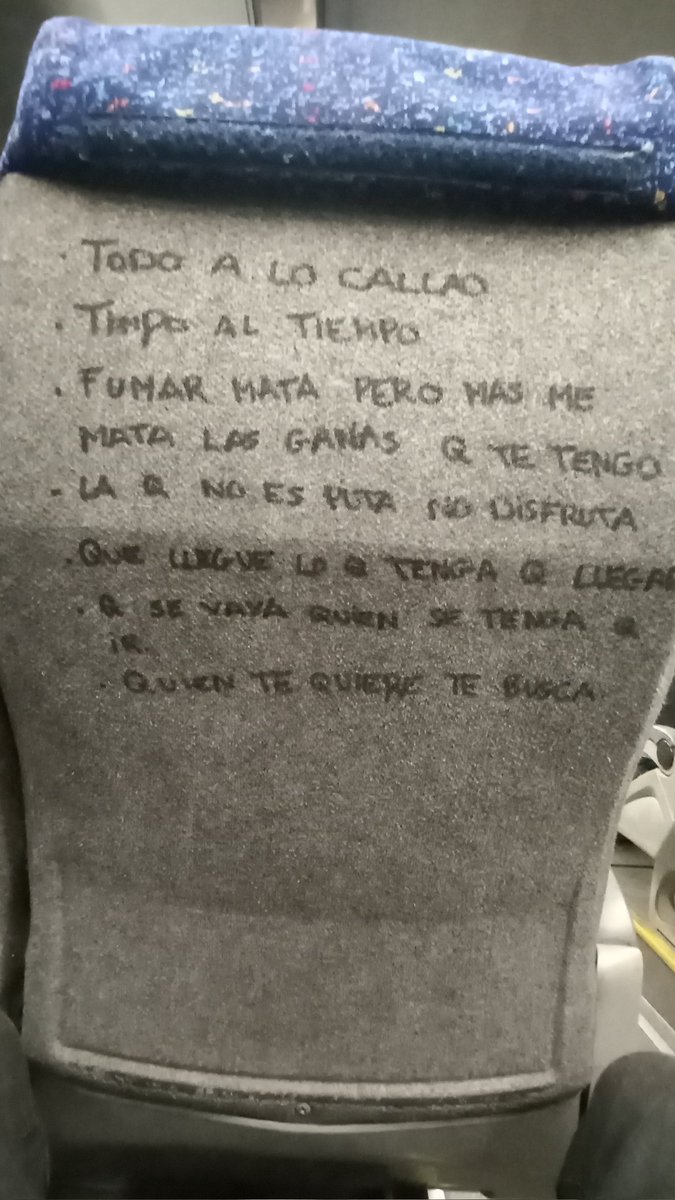 · TODO A LO CALLAO
· TIMPO AL TIEMPO
· FUMAR MATA PERO MAS ME
MATA LAS GANAS Q TE TENGO
- LA Q NO ES PUTA NO DISFRUTA
· QUE LLEGUE LO Q TENGA Q LLEGAR
· Q SE VAYA QUIEN SE TENGA Q
IR.
· QUIEN TE QUIERE TE BUSCA